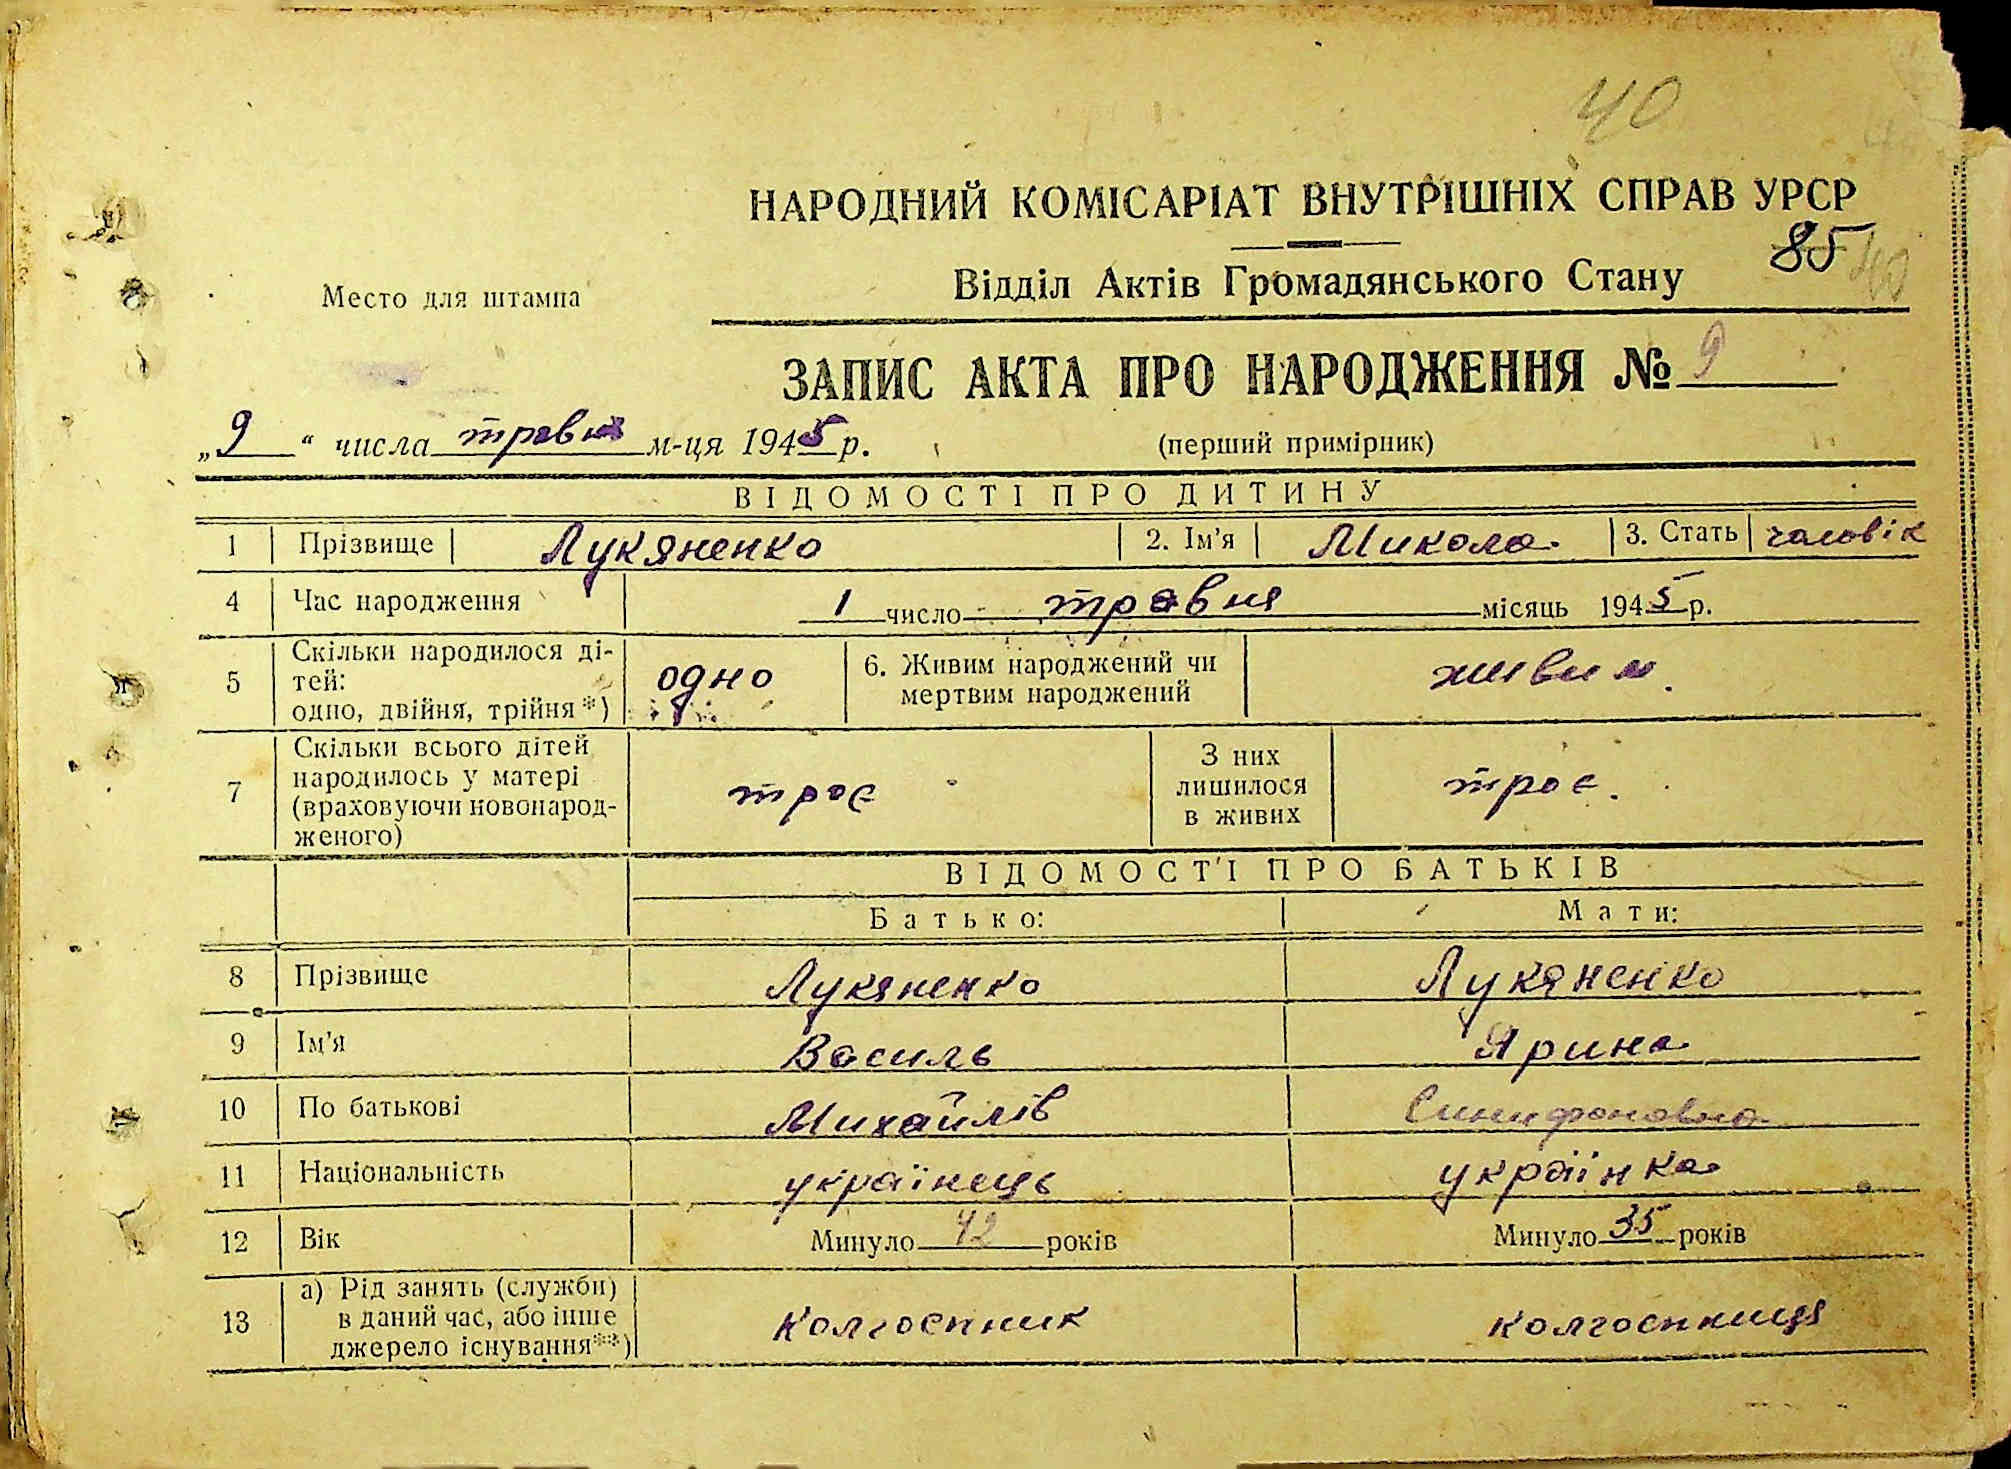 40
НАРОДНИЙ КОМІСАРІАТ ВНУТРІШНІХ СПРАВ УРСР
85 40
Место для штампа
Відділ Актів Громадянського Стану
ЗАПИС АКТА ПРО НАРОДЖЕННЯ № 9
„9“ числа травня м-ця 1945 р.
(перший примірник)
ВІДОМОСТІ ПРО ДИТИНУ
1 Прізвище Лукяненко 2. Ім'я Микола 3. Стать чаловік
4 Час народження 1 число травня місяць 1945 р.
5 Скільки народилося ді-
тей:
одно, двійня, трійня*) одно 6. Живим народжений чи
мертвим народжений живим.
7 Скільки всього дітей
народилось у матері
(враховуючи новонарод-
женого) троє З них
лишилося
в живих троє.
ВІДОМОСТІ ПРО БАТЬКІВ
Батько: Мати:
8 Прізвище Лукяненко Лукяненко
9 Ім'я Василь Ярина
10 По батькові Михайлів
11 Національність українець українка
12 Вік Минуло 42 років Минуло 35 років
13 а) Рід занять (служби)
в даний час, або інше
джерело існування**) колгоспник колгоспниця